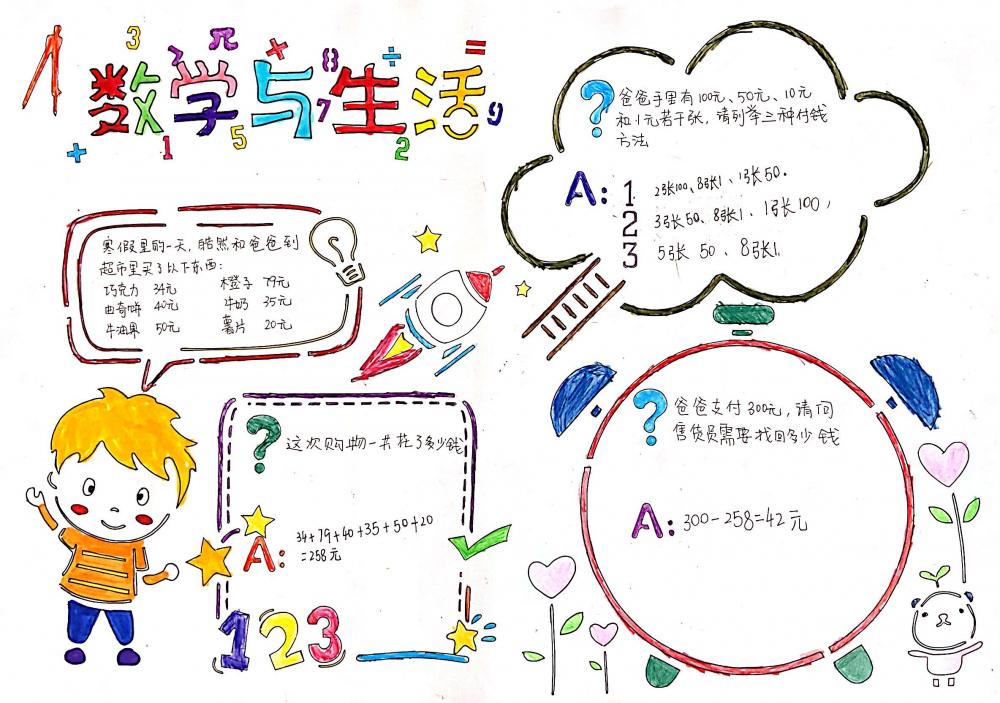 数学与生活
3
π
+
8
÷
=
7
9
+
1
5
2
寒假里的一天，皓然和爸爸到
超市里买了以下东西：
巧克力 34元 橙子 79元
曲奇饼 40元 牛奶 35元
牛油果 50元 薯片 20元
? 爸爸手里有100元、50元、10元
和1元若干张，请列举三种付钱
方法
A: 1 2张100、8张1、1张50.
2 3张50、8张1、1张100，
3 5张50、8张1.
? 这次购物一共花了多少钱
A: 34+79+40+35+50+20
=258元
123
? 爸爸支付300元，请问
售货员需要找回多少钱
A: 300-258=42元